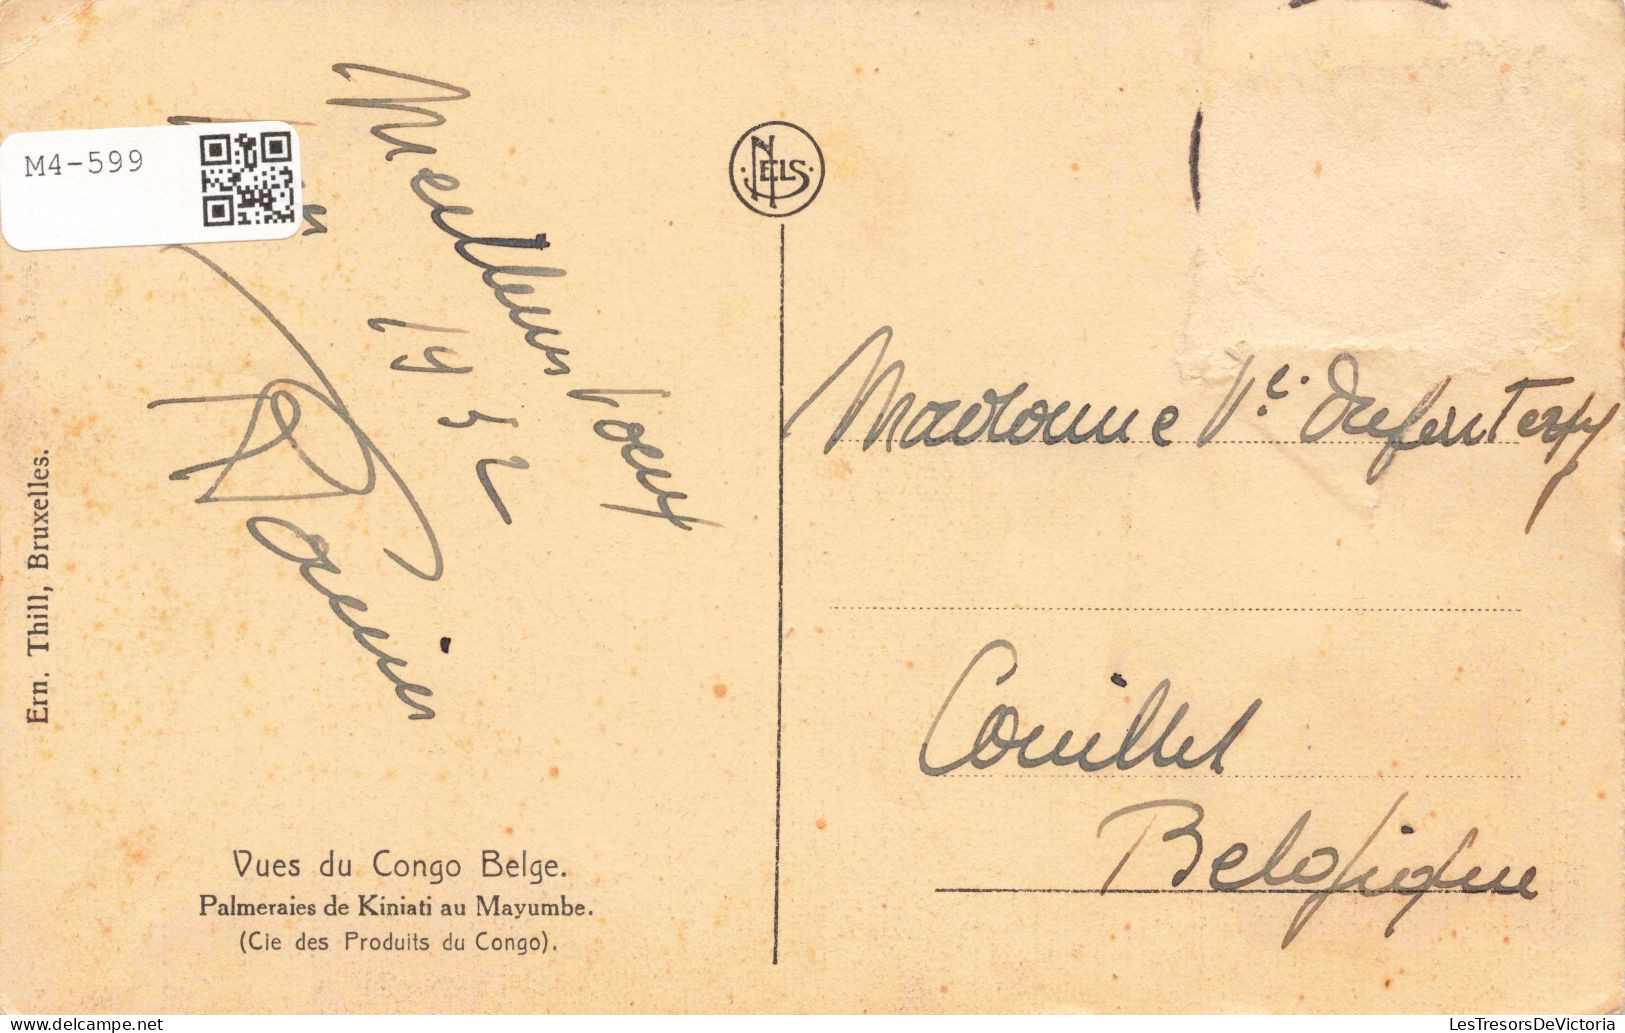 M4-599
Meilleurs Voeux
1952
NELS
Madame Ve.
Couillet
Belgique
Ern. Thill, Bruxelles.
Vues du Congo Belge.
Palmeraies de Kiniati au Mayumbe.
(Cie des Produits du Congo).
LesTresorsDeVictoria